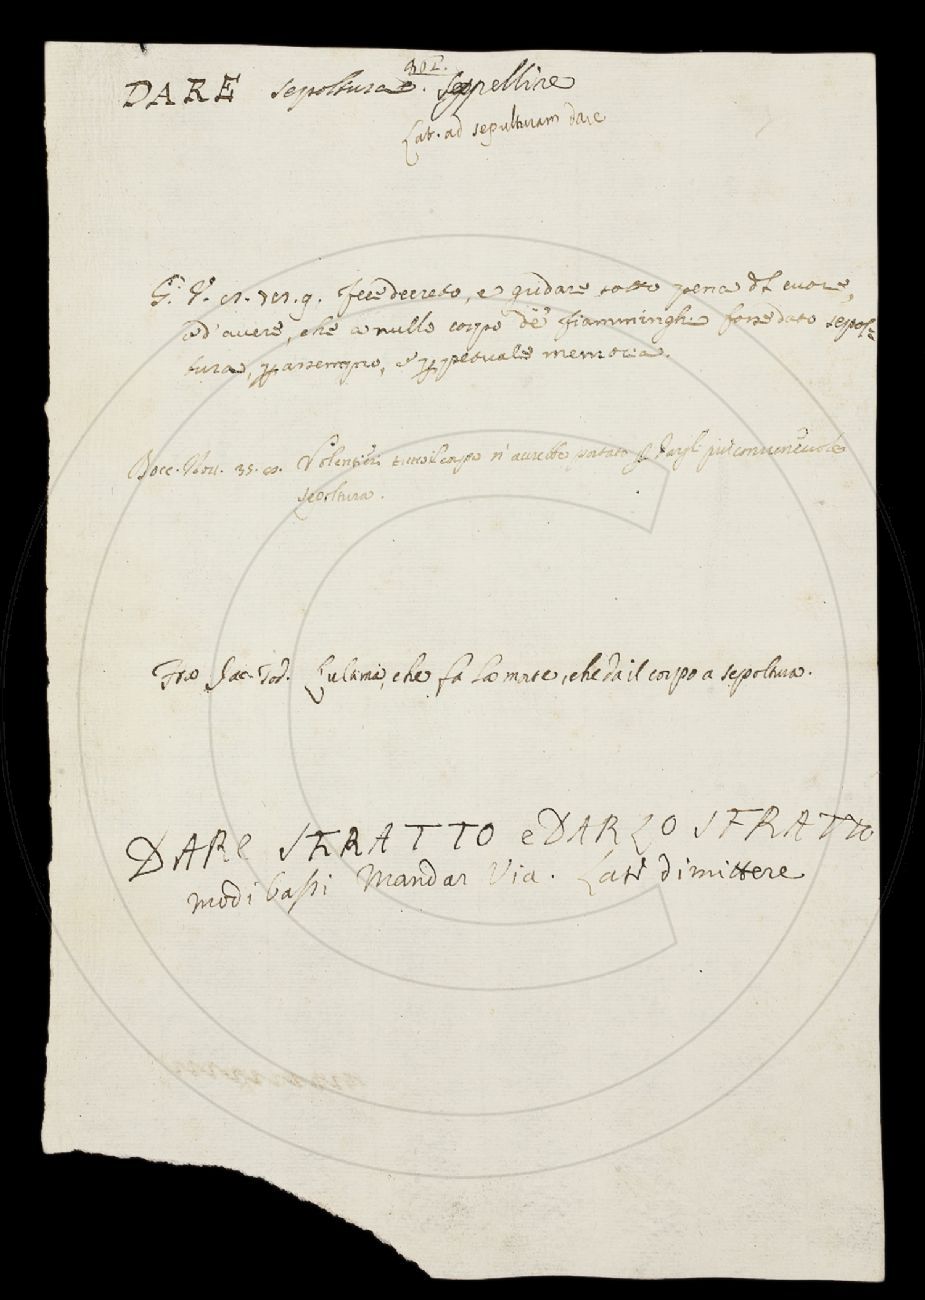 DARE sepoltura e. Seppellire
Lat. ad sepulturam dare
G. V. fece decreto, e gridare sotto pena dl cuore,
ed' avere, che a nullo corpo de' fiamminghi fosse dato sepol=
tura, p assempro, e ppetuale memoria.
Bocc. Nov. 35. Volentieri tutto il corpo n' aurebbe portato p dargli più convenevole
sepoltura.
Fra Jac. Tod. L'ultima, che fa la morte, che dà il corpo a sepoltura.
DARE SFRATTO e DARLO SFRATTO
modi bassi Mandar Via. Lat. dimittere